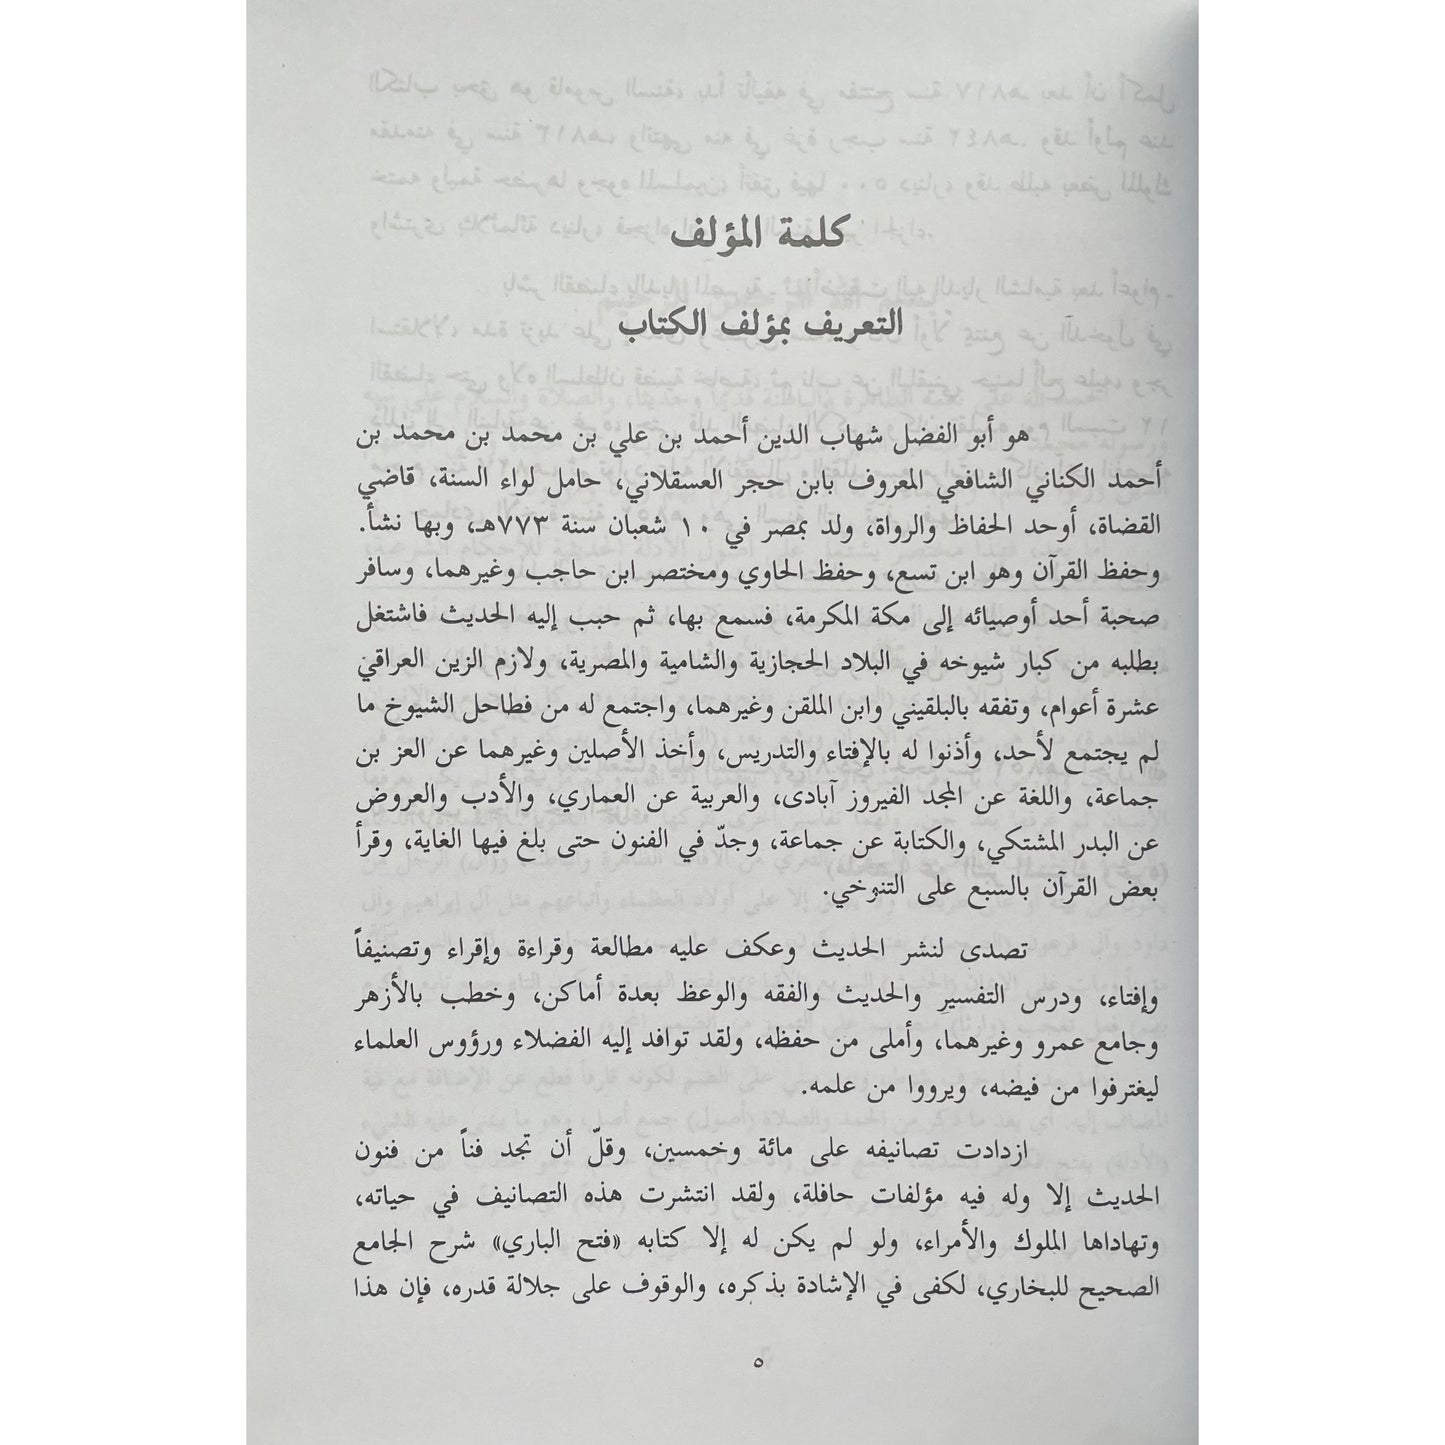 كلمة المؤلف
التعريف بمؤلف الكتاب
هو أبو الفضل شهاب الدين أحمد بن علي بن محمد بن محمد بن
أحمد الكناني الشافعي المعروف بابن حجر العسقلاني، حامل لواء السنة، قاضي
القضاة، أوحد الحفاظ والرواة، ولد بمصر في ١٠ شعبان سنة ٧٧٣هـ، وبها نشأ.
وحفظ القرآن وهو ابن تسع، وحفظ الحاوي ومختصر ابن حاجب وغيرهما، وسافر
صحبة أحد أوصيائه إلى مكة المكرمة، فسمع بها، ثم حبب إليه الحديث فاشتغل
بطلبه من كبار شيوخه في البلاد الحجازية والشامية والمصرية، ولازم الزين العراقي
عشرة أعوام، وتفقه بالبلقيني وابن الملقن وغيرهما، واجتمع له من فطاحل الشيوخ ما
لم يجتمع لأحد، وأذنوا له بالإفتاء والتدريس، وأخذ الأصلين وغيرهما عن العز بن
جماعة، واللغة عن المجد الفيروز آبادى، والعربية عن العماري، والأدب والعروض
عن البدر المشتكي، والكتابة عن جماعة، وجدّ في الفنون حتى بلغ فيها الغاية، وقرأ
بعض القرآن بالسبع على التنوخي.
تصدى لنشر الحديث وعكف عليه مطالعة وقراءة وإقراء وتصنيفاً
وإفتاء، ودرس التفسير والحديث والفقه والوعظ بعدة أماكن، وخطب بالأزهر
وجامع عمرو وغيرهما، وأملى من حفظه، ولقد توافد إليه الفضلاء ورؤوس العلماء
ليغترفوا من فيضه، ويرووا من علمه.
ازدادت تصانيفه على مائة وخمسين، وقلّ أن تجد فناً من فنون
الحديث إلا وله فيه مؤلفات حافلة، ولقد انتشرت هذه التصانيف في حياته،
وتهاداها الملوك والأمراء، ولو لم يكن له إلا كتابه «فتح الباري» شرح الجامع
الصحيح للبخاري، لكفى في الإشادة بذكره، والوقوف على جلالة قدره، فإن هذا
٥